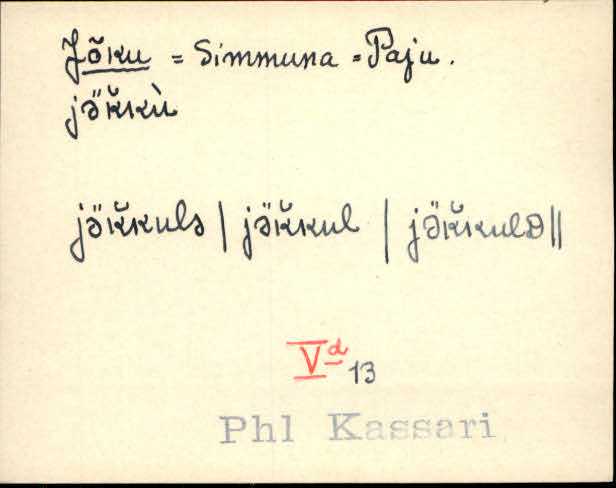 Jõku = Simmuna = Paju.
jö̆kkù
jö̆kkuls | jö̆kkul | jö̆kkulD ||
V d 13
Phl Kassari